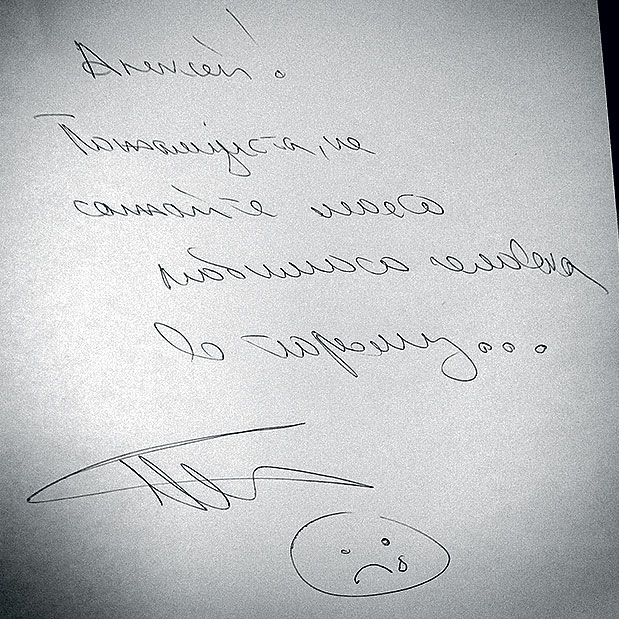 Алексей!
Пожалуйста, не
сажайте моего
любимого человека
в тюрьму...